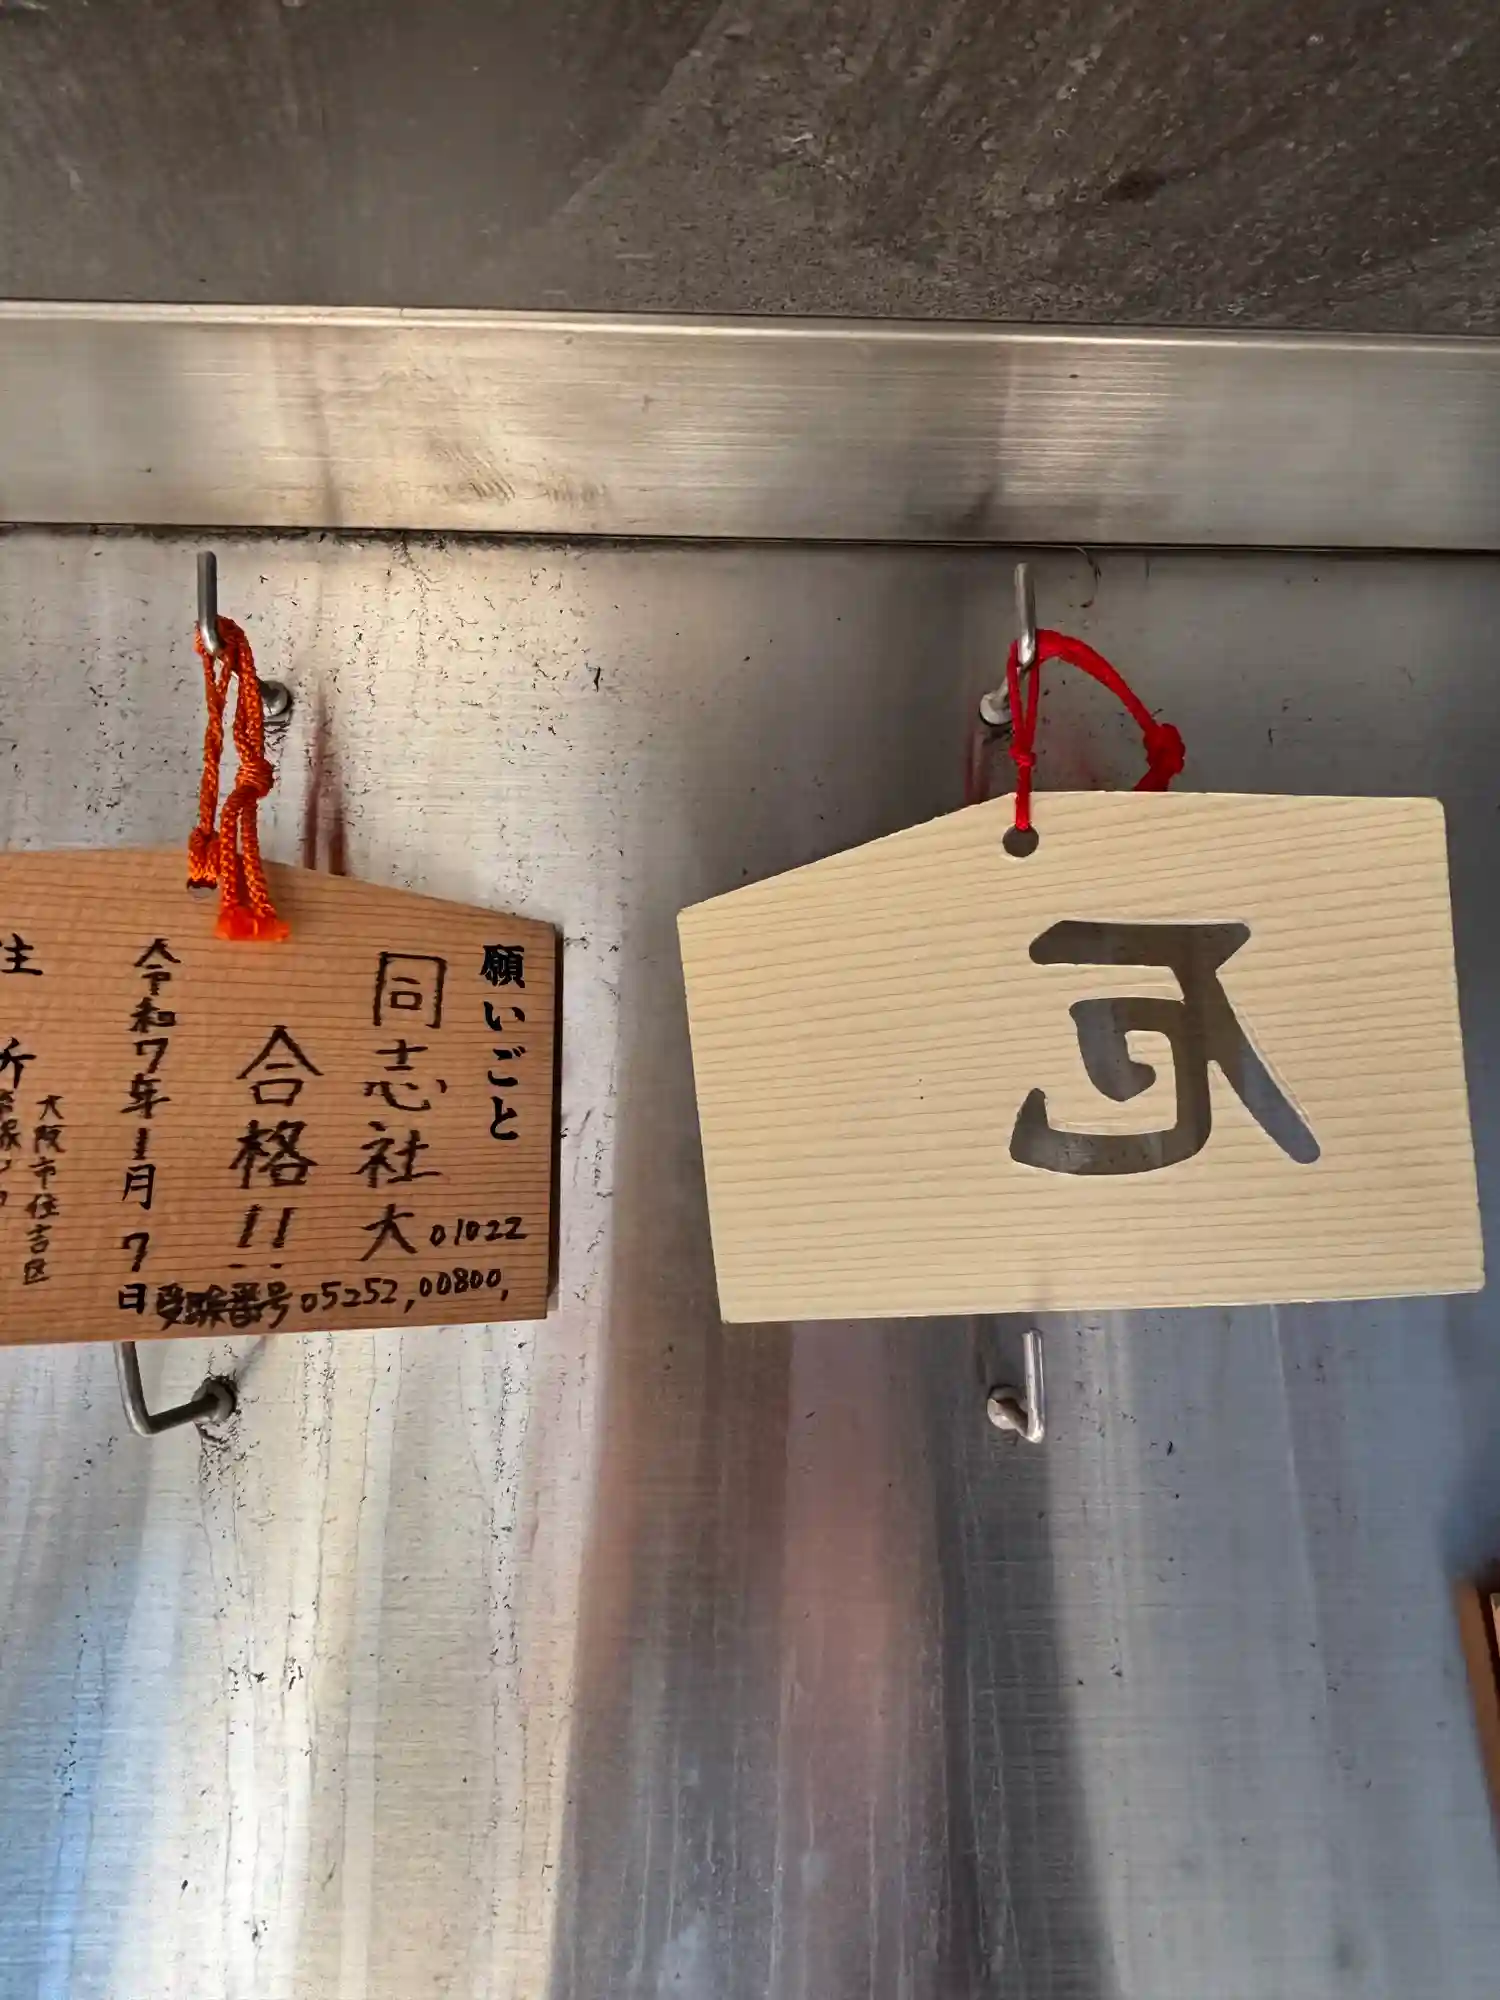 願いごと
同志社大
合格!!
01022
受験番号05252,00800,
令和7年1月7日
住所
大阪市住吉区